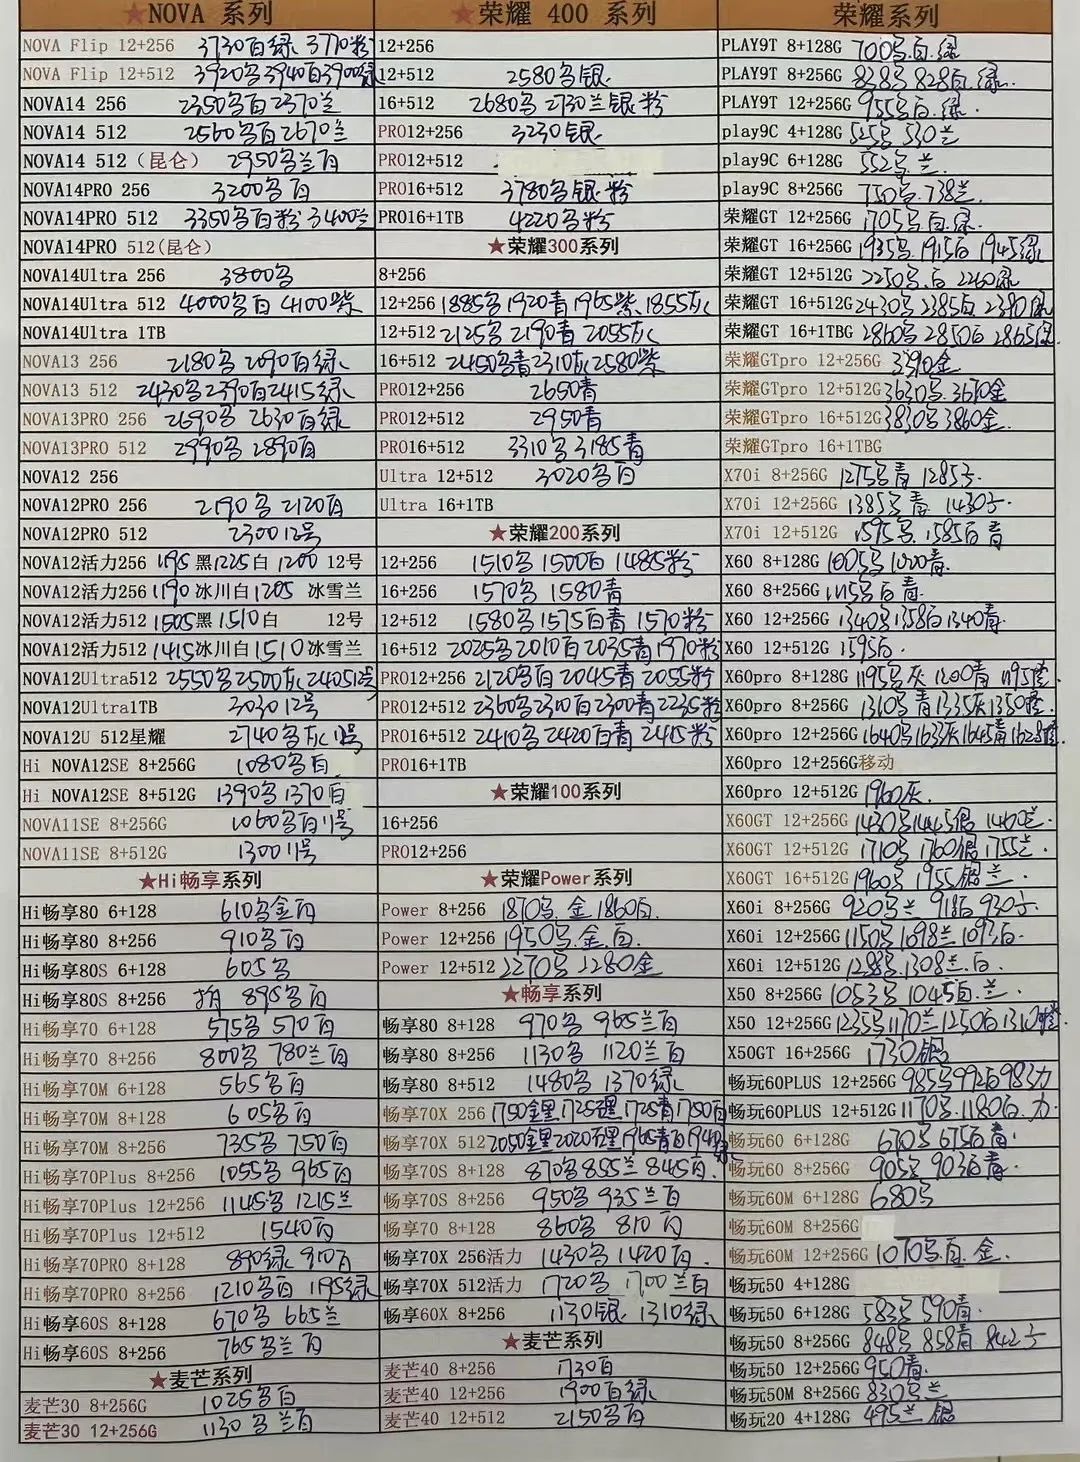 ★NOVA 系列
NOVA Flip 12+256 3730白绿 3770粉
NOVA Flip 12+512 3920黑3940白3900绿
NOVA14 256 2350黑白2370兰
NOVA14 512 2560黑白2670兰
NOVA14 512（昆仑） 2950黑兰白
NOVA14PRO 256 3200黑白
NOVA14PRO 512 3350黑白粉 3400兰
NOVA14PRO 512(昆仑)
NOVA14Ultra 256 3800黑
NOVA14Ultra 512 4000黑白 4100紫
NOVA14Ultra 1TB
NOVA13 256 2180黑 2090白绿
NOVA13 512 2430黑2390白2415绿
NOVA13PRO 256 2690黑 2630白绿
NOVA13PRO 512 2990黑 2890白
NOVA12 256
NOVA12PRO 256 2190黑 2120白
NOVA12PRO 512 2300 12号
NOVA12活力256 1195黑1225白 1200 12号
NOVA12活力256 1190冰川白1205 冰雪兰
NOVA12活力512 1505黑1510白 12号
NOVA12活力512 1415冰川白1510冰雪兰
NOVA12Ultra512 2550黑2500灰2405 12号
NOVA12Ultra1TB 3030 12号
NOVA12U 512星耀 2740黑灰 11号
Hi NOVA12SE 8+256G 1080黑白
Hi NOVA12SE 8+512G 1390黑1370白
NOVA11SE 8+256G 1060黑白11号
NOVA11SE 8+512G 1300 11号
★Hi畅享系列
Hi畅享80 6+128 610黑金白
Hi畅享80 8+256 910黑白
Hi畅享80S 6+128 605黑
Hi畅享80S 8+256 895黑白
Hi畅享70 6+128 575黑 570白
Hi畅享70 8+256 800黑 780兰白
Hi畅享70M 6+128 565黑白
Hi畅享70M 8+128 605黑白
Hi畅享70M 8+256 735黑 750白
Hi畅享70Plus 8+256 1055黑 965白
Hi畅享70Plus 12+256 1145黑 1215兰
Hi畅享70Plus 12+512 1540白
Hi畅享70PRO 8+128 890绿 910白
Hi畅享70PRO 8+256 1210黑白 1195绿
Hi畅享60S 8+128 670黑 665兰
Hi畅享60S 8+256 765黑兰白
★麦芒系列
麦芒30 8+256G 1025黑白
麦芒30 12+256G 1130黑兰白
★荣耀 400 系列
12+256
12+512 2580黑银
16+512 2680黑 2730兰银粉
PRO12+256 3230银
PRO12+512
PRO16+512 3780黑银粉
PRO16+1TB 4220黑粉
★荣耀300系列
8+256
12+256 1885黑1920青1965紫1855灰
12+512 2125黑 2190青 2055灰
16+512 2450黑青2310灰2580紫
PRO12+256 2650青
PRO12+512 2950青
PRO16+512 3310黑 3185青
Ultra 12+512 3020黑白
Ultra 16+1TB
★荣耀200系列
12+256 1510黑 1500白 1485粉
16+256 1570黑 1580青
12+512 1580黑 1575白青 1570粉
16+512 2025黑 2010白 2035青1970粉
PRO12+256 2120黑白 2045青 2055粉
PRO12+512 2360黑2300白2300青2235粉
PRO16+512 2410黑 2420白青 2415粉
PRO16+1TB
★荣耀100系列
16+256
PRO12+256
★荣耀Power系列
Power 8+256 1870黑.金1860白.
Power 12+256 1950黑.金.白.
Power 12+512 2270黑 2280金
★畅享系列
畅享80 8+128 970黑 965兰白
畅享80 8+256 1130黑 1120兰白
畅享80 8+512 1480黑 1370绿
畅享70X 256 1750金黑1725青1750白
畅享70X 512 2050金黑2020 1965青白
畅享70S 8+128 870黑855兰 845白
畅享70S 8+256 950黑 935兰白
畅享70 8+128 860黑 810白
畅享70X 256活力 1430黑 1420白
畅享70X 512活力 1720黑 1700兰白
畅享60X 8+256 1130银 1310绿
★麦芒系列
麦芒40 8+256 1730白
麦芒40 12+256 1900白绿
麦芒40 12+512 2150黑白
荣耀系列
PLAY9T 8+128G 700黑.白.绿
PLAY9T 8+256G 838黑 828白.绿.
PLAY9T 12+256G 955黑.白.绿.
play9C 4+128G 525黑 530兰
play9C 6+128G 552黑.兰
play9C 8+256G 750黑.738兰.
荣耀GT 12+256G 1705黑.白.绿.
荣耀GT 16+256G 1935黑.1915白 1945绿
荣耀GT 12+512G 2250黑.白 2260绿
荣耀GT 16+512G 2430黑 2385白 2390绿
荣耀GT 16+1TBG 2860黑 2850白 2865绿
荣耀GTpro 12+256G 3390金
荣耀GTpro 12+512G 3630黑.3670金
荣耀GTpro 16+512G 3830黑3860金.
荣耀GTpro 16+1TBG
X70i 8+256G 1275黑青 1285
X70i 12+256G 1385黑青 1430
X70i 12+512G 1595黑.1585白青
X60 8+128G 1005黑 1020青.
X60 8+256G 1115黑白青.
X60 12+256G 1340黑1358白1340青.
X60 12+512G 1595白.
X60pro 8+128G 1195黑灰 1200青 1195橙
X60pro 8+256G 1310黑青1335灰1350橙
X60pro 12+256G 1640黑 1645青
X60pro 12+256G移动
X60pro 12+512G 1960灰.
X60GT 12+256G 1430黑1445银 1460兰.
X60GT 12+512G 1710黑 1760银1755兰.
X60GT 16+512G 1960黑 1955银兰.
X60i 8+256G 920黑兰 918白 930
X60i 12+256G 1150黑1098兰 1093白.
X60i 12+512G 1288黑1308兰.白.
X50 8+256G 1053黑 1045白.兰.
X50 12+256G 1235黑1170兰1250白1310橙
X50GT 16+256G 1730银
畅玩60PLUS 12+256G 985黑992白983
畅玩60PLUS 12+512G 1170黑.1180白.
畅玩60 6+128G 670黑 675白青.
畅玩60 8+256G 905黑 903白青.
畅玩60M 6+128G 680黑
畅玩60M 8+256G
畅玩60M 12+256G 1070黑白.金.
畅玩50 4+128G
畅玩50 6+128G 583黑 590青.
畅玩50 8+256G 848黑 858青 842
畅玩50 12+256G 950青.
畅玩50M 8+256G 830黑兰
畅玩20 4+128G 495兰 银